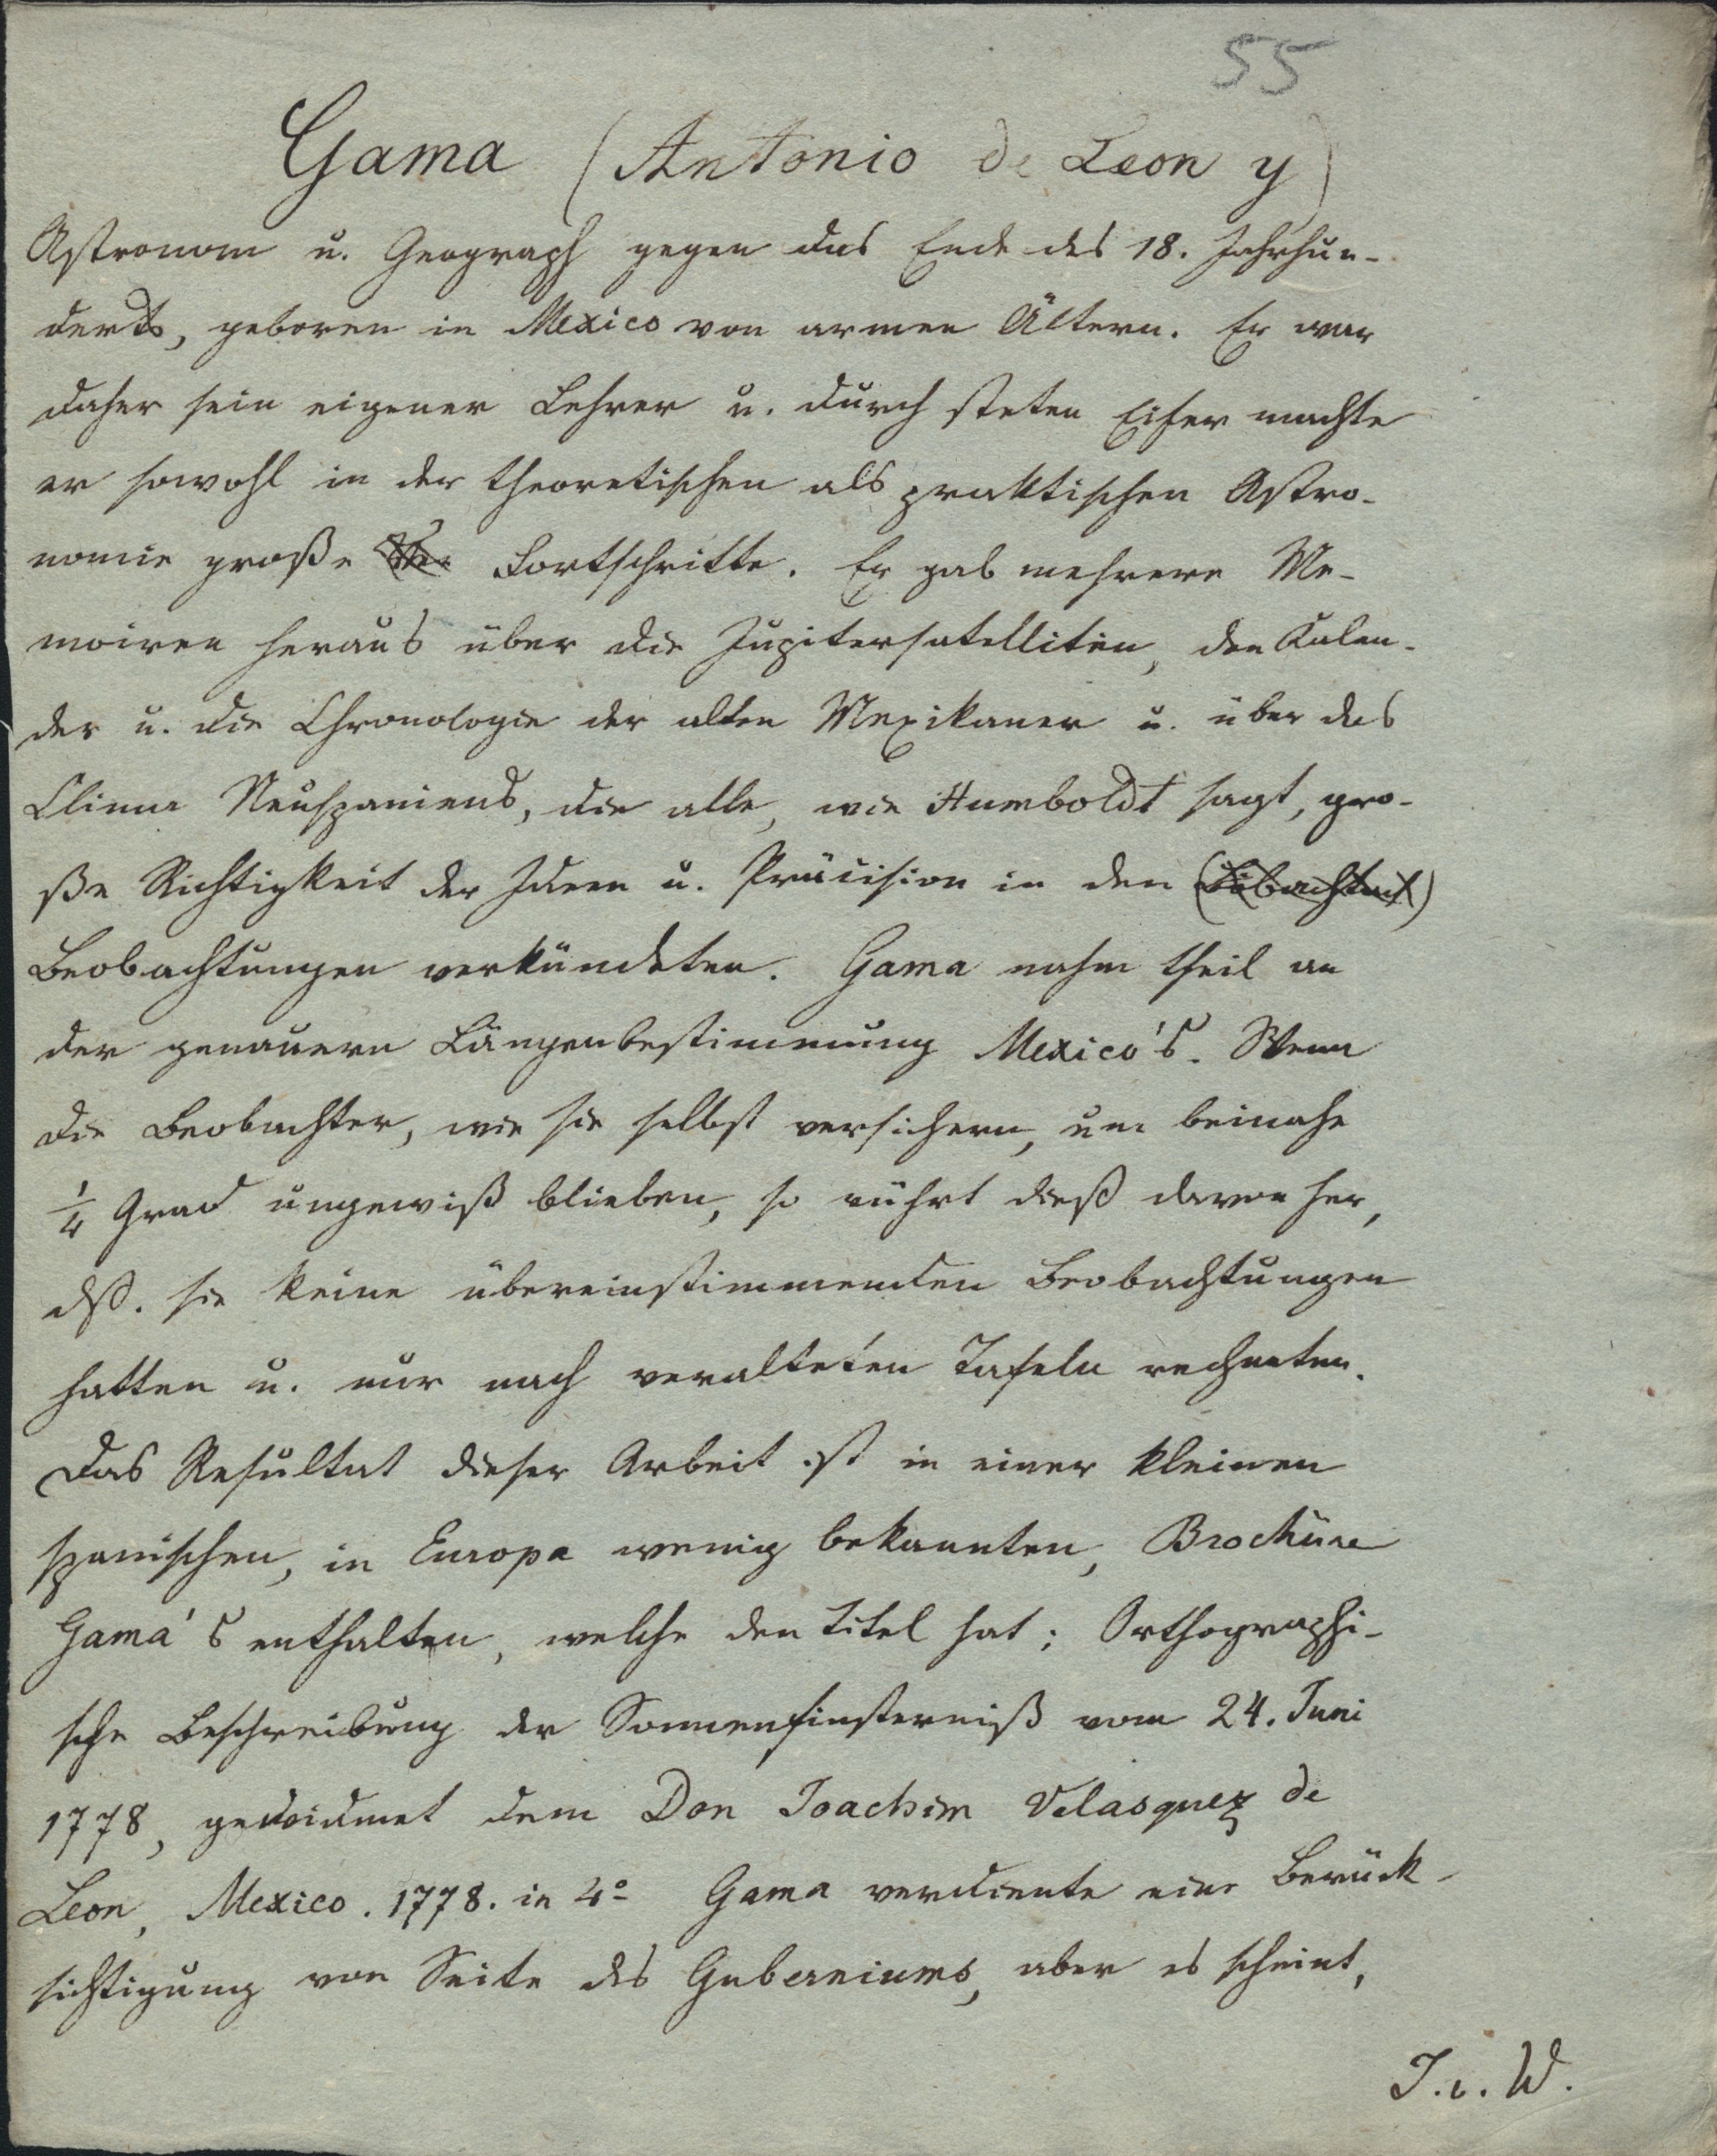 55
Gama (Antonio de Leon y)
Astronom u. Geograph gegen das Ende des 18. Jahrhun-
derts, geboren in Mexico von armen Ältern. Er war
daher sein eigener Lehrer u. durch steten Eifer machte
er sowohl in der theoretischen als praktischen Astro-
nomie große Fortschritte. Er gab mehrere Me-
moiren heraus über die Jupitersatelliten, den Kalen-
der u. die Chronologie der alten Mexikaner u. über das
Clima Neuspaniens, die alle, wie Humboldt sagt, gro-
ße Richtigkeit der Ideen u. Präcision in den
Beobachtungen verkündeten. Gama nahm theil an
der genauern Längenbestimmung Mexico's. Wenn
die Beobachter, wie sie selbst versichern, um beinahe
1/4 Grad ungewiß blieben, so rührt dieß davon her,
dß. sie keine übereinstimmenden Beobachtungen
hatten u. nur nach veralteten Tafeln rechneten.
Das Resultat dieser Arbeit ist in einer kleinen
spanischen, in Europa wenig bekannten, Brochüre
Gama's enthalten, welche den Titel hat: Orthographi-
sche Beschreibung der Sonnenfinsterniß vom 24. Juni
1778, gewidmet dem Don Joachim Velasquez de
Leon, Mexico. 1778. in 4º Gama verdiente eine Berück-
sichtigung von Seite des Guberniums, aber es scheint,
J. v. W.